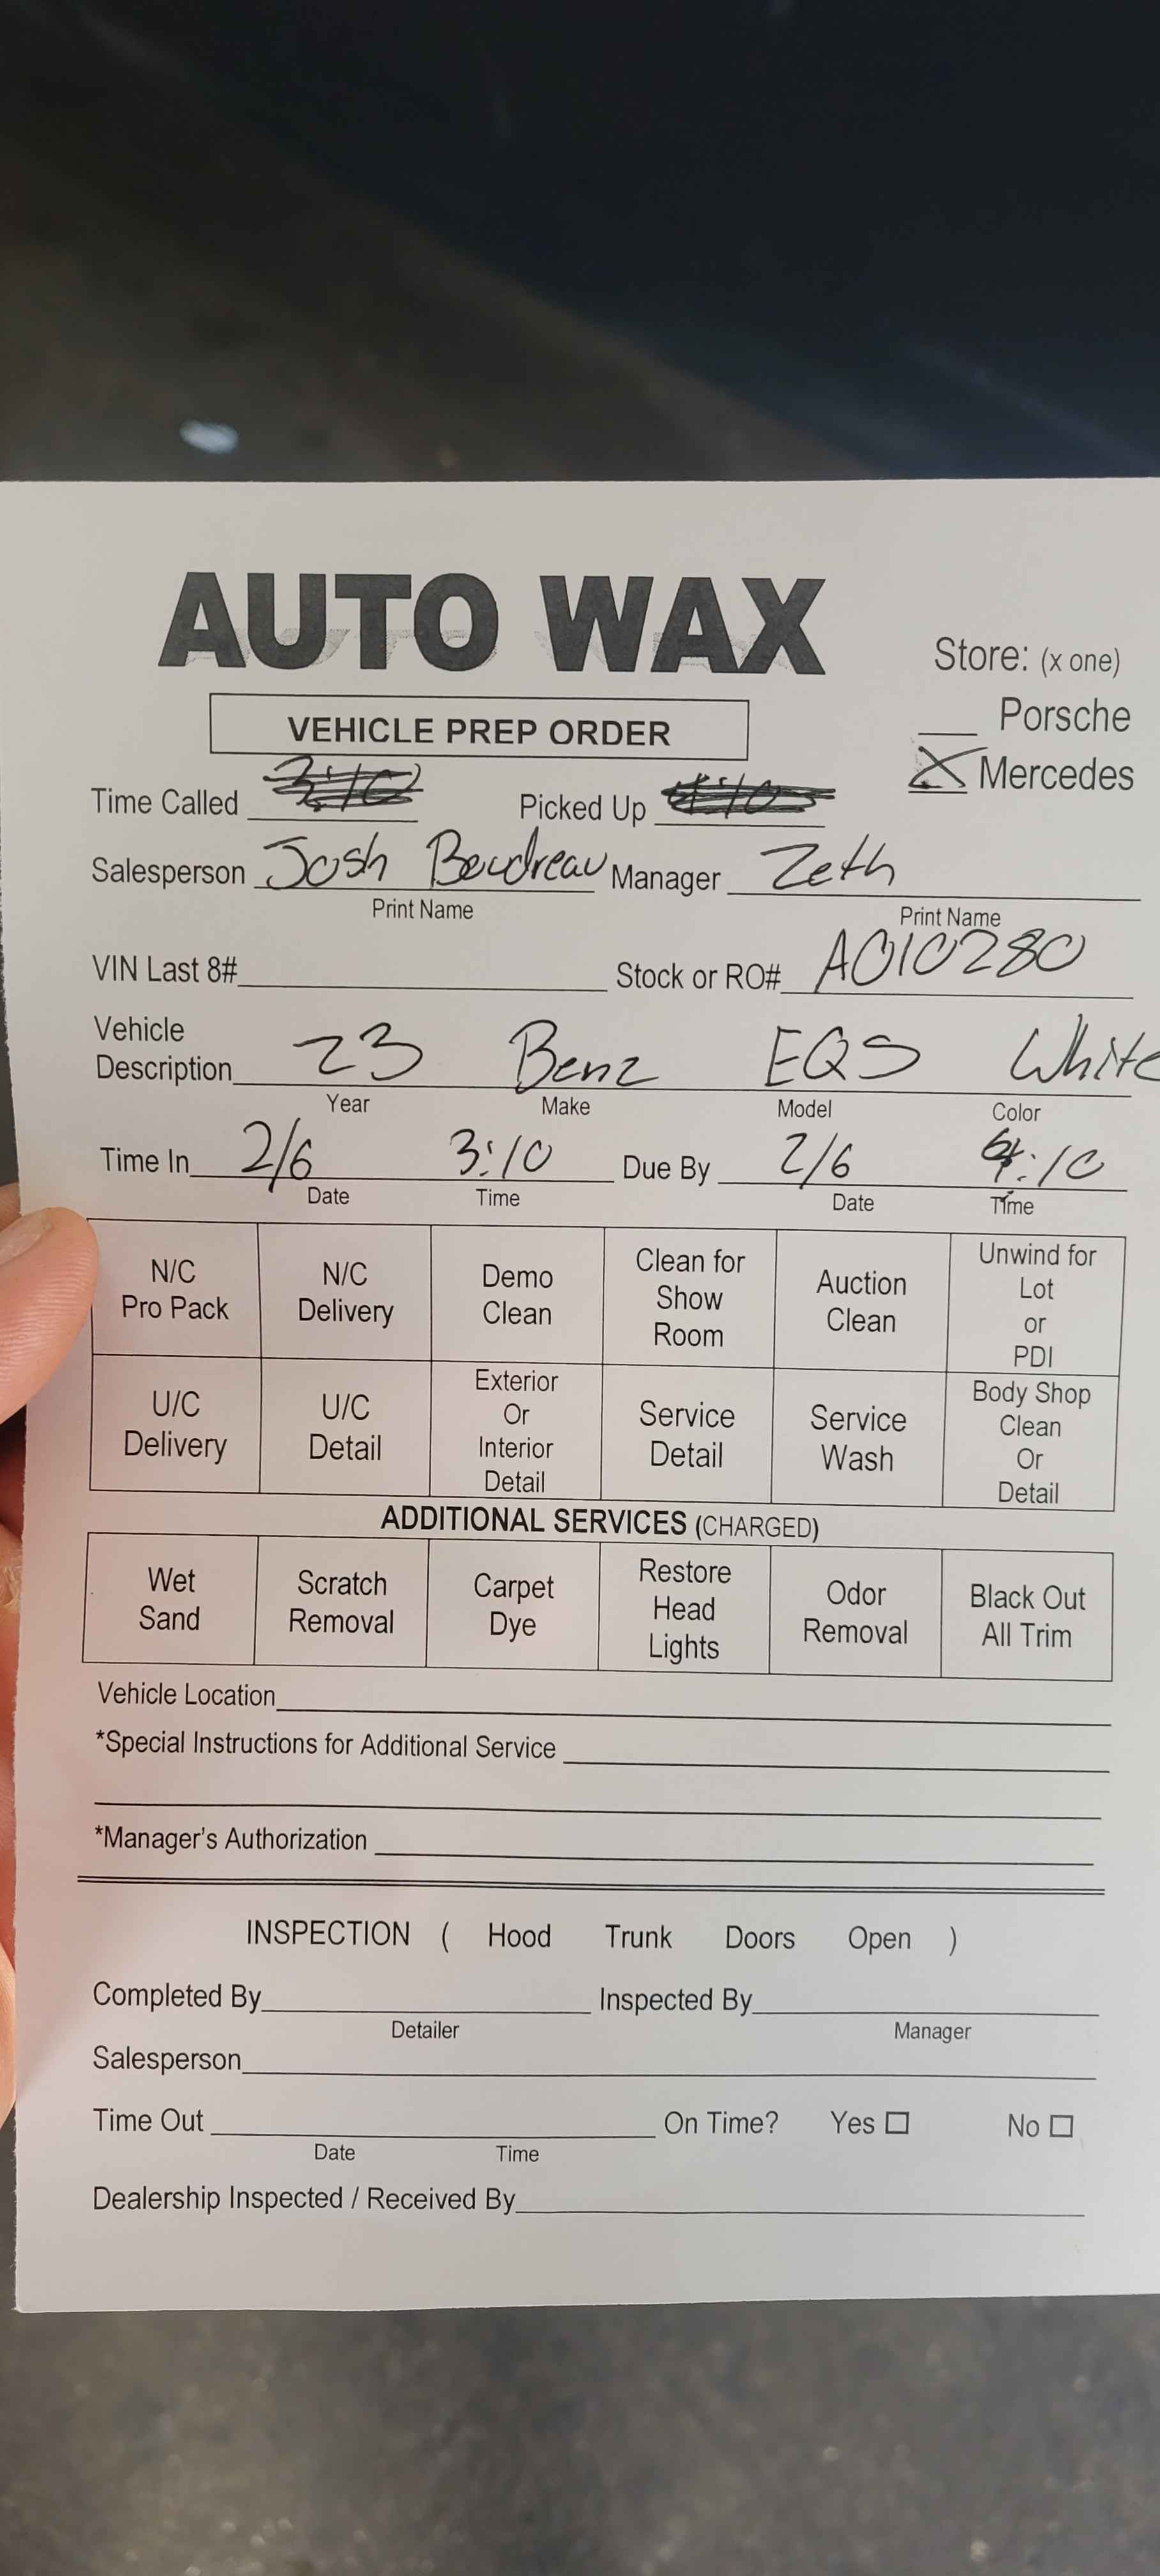 AUTO WAX
Store: (x one)
VEHICLE PREP ORDER
Porsche
X Mercedes
Time Called 3:10 Picked Up
Salesperson Josh Boudreau Manager Zeth
Print Name Print Name
VIN Last 8# Stock or RO# A010280
Vehicle
Description 23 Benz EQS White
Year Make Model Color
Time In 2/6 3:10 Due By 2/6 4:10
Date Time Date Time
N/C Pro Pack
N/C Delivery
Demo Clean
Clean for Show Room
Auction Clean
Unwind for Lot or PDI
U/C Delivery
U/C Detail
Exterior Or Interior Detail
Service Detail
Service Wash
Body Shop Clean Or Detail
ADDITIONAL SERVICES (CHARGED)
Wet Sand
Scratch Removal
Carpet Dye
Restore Head Lights
Odor Removal
Black Out All Trim
Vehicle Location
*Special Instructions for Additional Service
*Manager's Authorization
INSPECTION ( Hood Trunk Doors Open )
Completed By Inspected By
Detailer Manager
Salesperson
Time Out On Time? Yes No
Date Time
Dealership Inspected / Received By